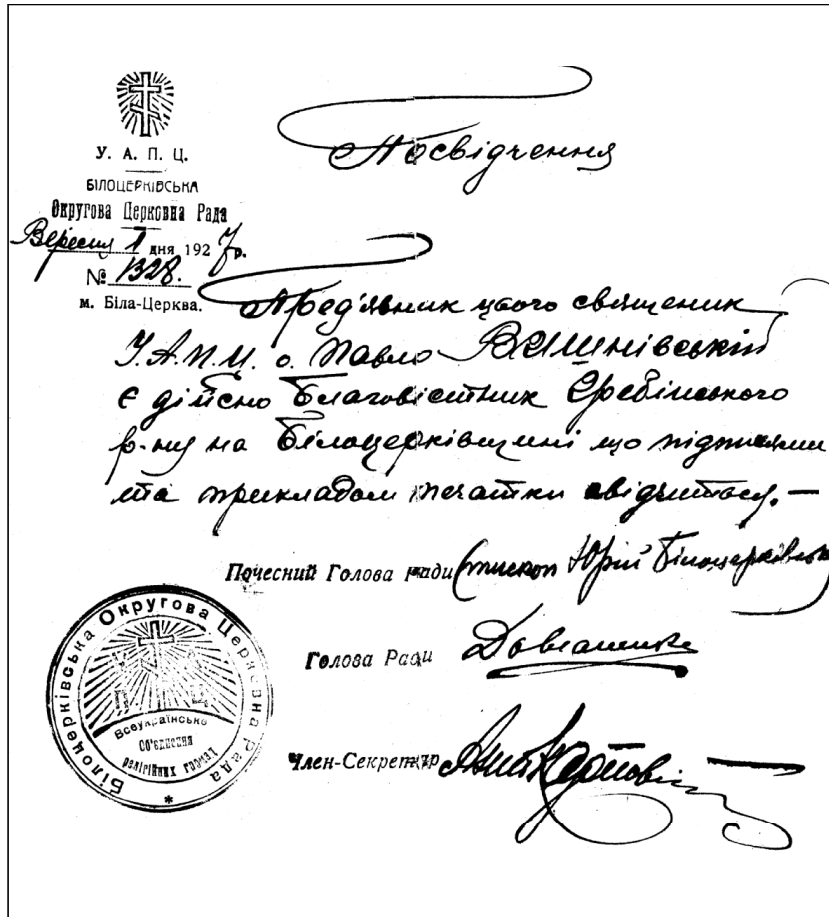 У. А. П. Ц.
БІЛОЦЕРКІВСЬКА
Округова Церковна Рада
Вересня 1 дня 1927 р.
№ 1328.
м. Біла-Церква.
Посвідчення
Пред'явник цього священик
У.А.П.Ц. о. Павло
є дійсно Благовістник
р-ну на Білоцерківщині що підписами
та прикладом печатки свідчиться. —
Почесний Голова ради Єпископ Юрій Білоцерківськ
Голова Ради
Член-Секретар
Білоцерківська Округова Церковна Рада
У А
П Ц
Всеукраїнське
Об'єднання
релігійних громад